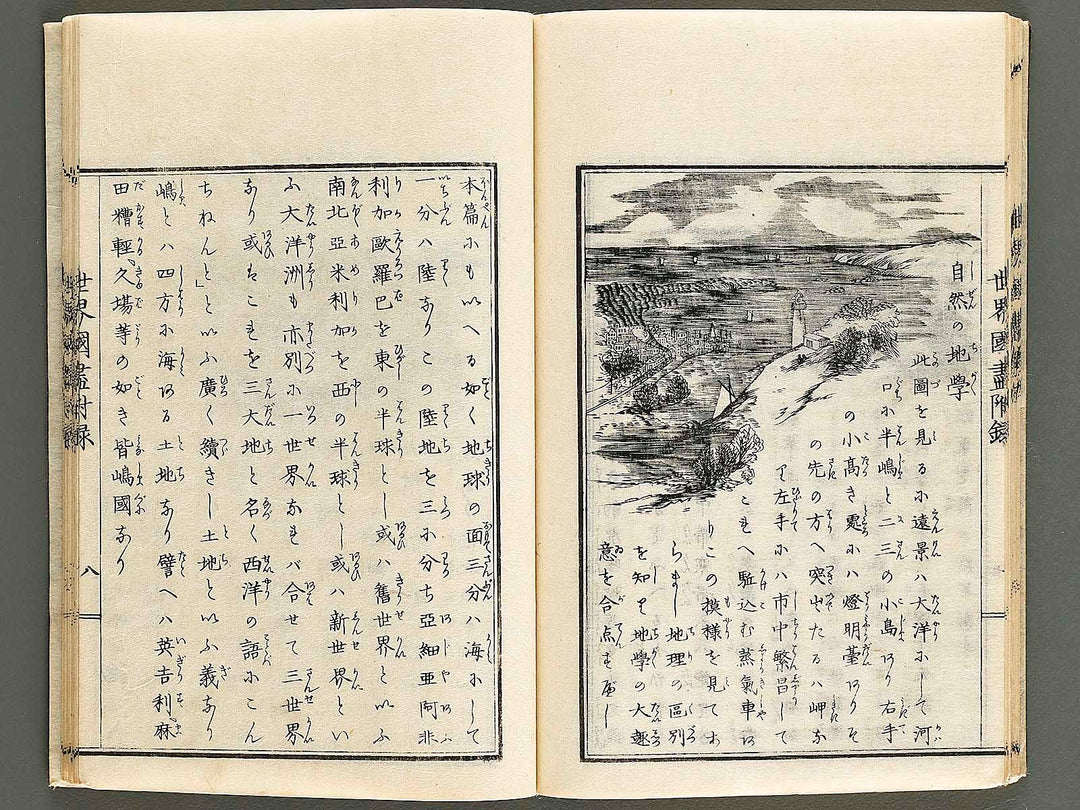 世界國盡附録
自然の地學
此圖を見るに遠景ハ大洋にして河
口に半嶋と二三の小島あり右手
の小高き處にハ燈明臺ありそ
の先の方へ突出たるハ岬な
り左手にハ市中繁昌して
こゝへ駈込む蒸氣車あ
りこの模様を見てお
らまし地理の區別
を知り地學の大趣
意を合点すべし
本篇にも以へる如く地球の面三分ハ海にして
一分ハ陸なりこの陸地を三に分ち亞細亜阿非
利加歐羅巴を東の半球とし或ハ舊世界といふ
南北亞米利加を西の半球とし或ハ新世界とい
ふ大洋洲も亦別に一世界なれバ合せて三世界
なり或はこれを三大地と名く西洋の語にこん
ちねんと」といふ廣く續きし土地といふ義なり
嶋とハ四方に海ある土地なり譬へハ英吉利麻
田糟輕久場等の如き皆嶋國なり
世界國盡附録
八